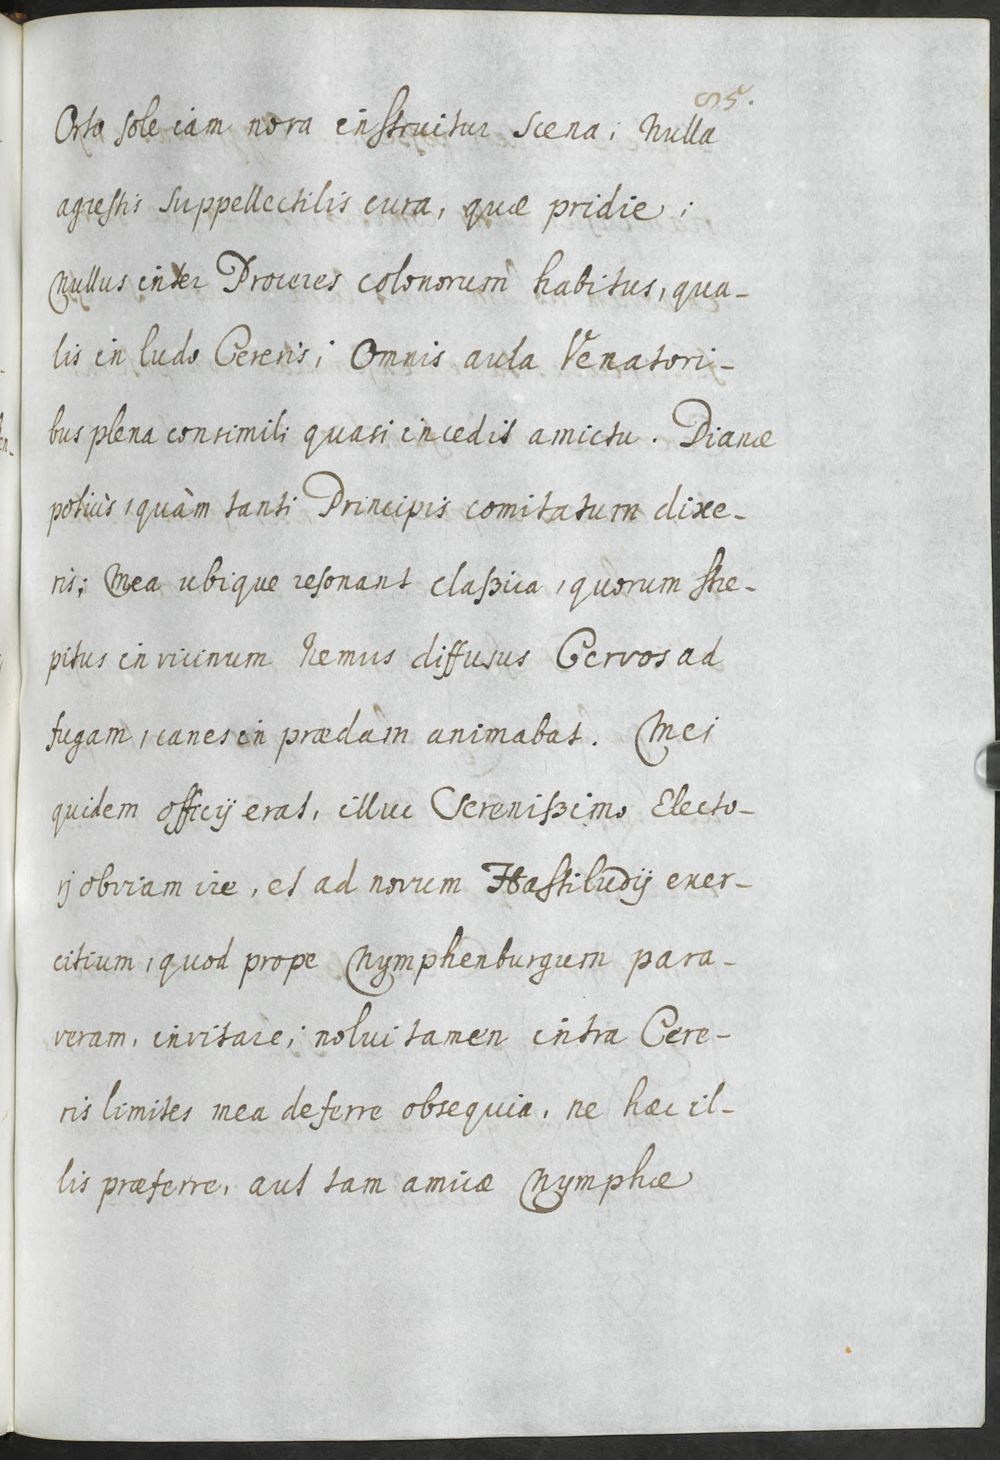 95.
Orto sole iam nova instruitur scena; Nulla
agrestis suppellectilis cura, quæ pridie;
Nullus inter Proceres colonorum habitus, qua-
lis in ludo Cereris; Omnis aula Venatori-
bus plena consimili quasi incedit amictu. Dianæ
potiùs, quàm tanti Principis comitatum dixe-
ris; Mea ubique resonant claßica, quorum stre-
pitus in vicinum Nemus diffusus Cervos ad
fugam, canes in prædam animabat. Mei
quidem officij erat, illuc Serenißimo Electo-
rj obviam ire, et ad novum Hastiludij exer-
citium, quod prope Nymphenburgum para-
veram, invitare; nolui tamen intra Cere-
ris limites mea deferre obsequia, ne hæc il-
lis præferre, aut tam amicæ Nymphæ